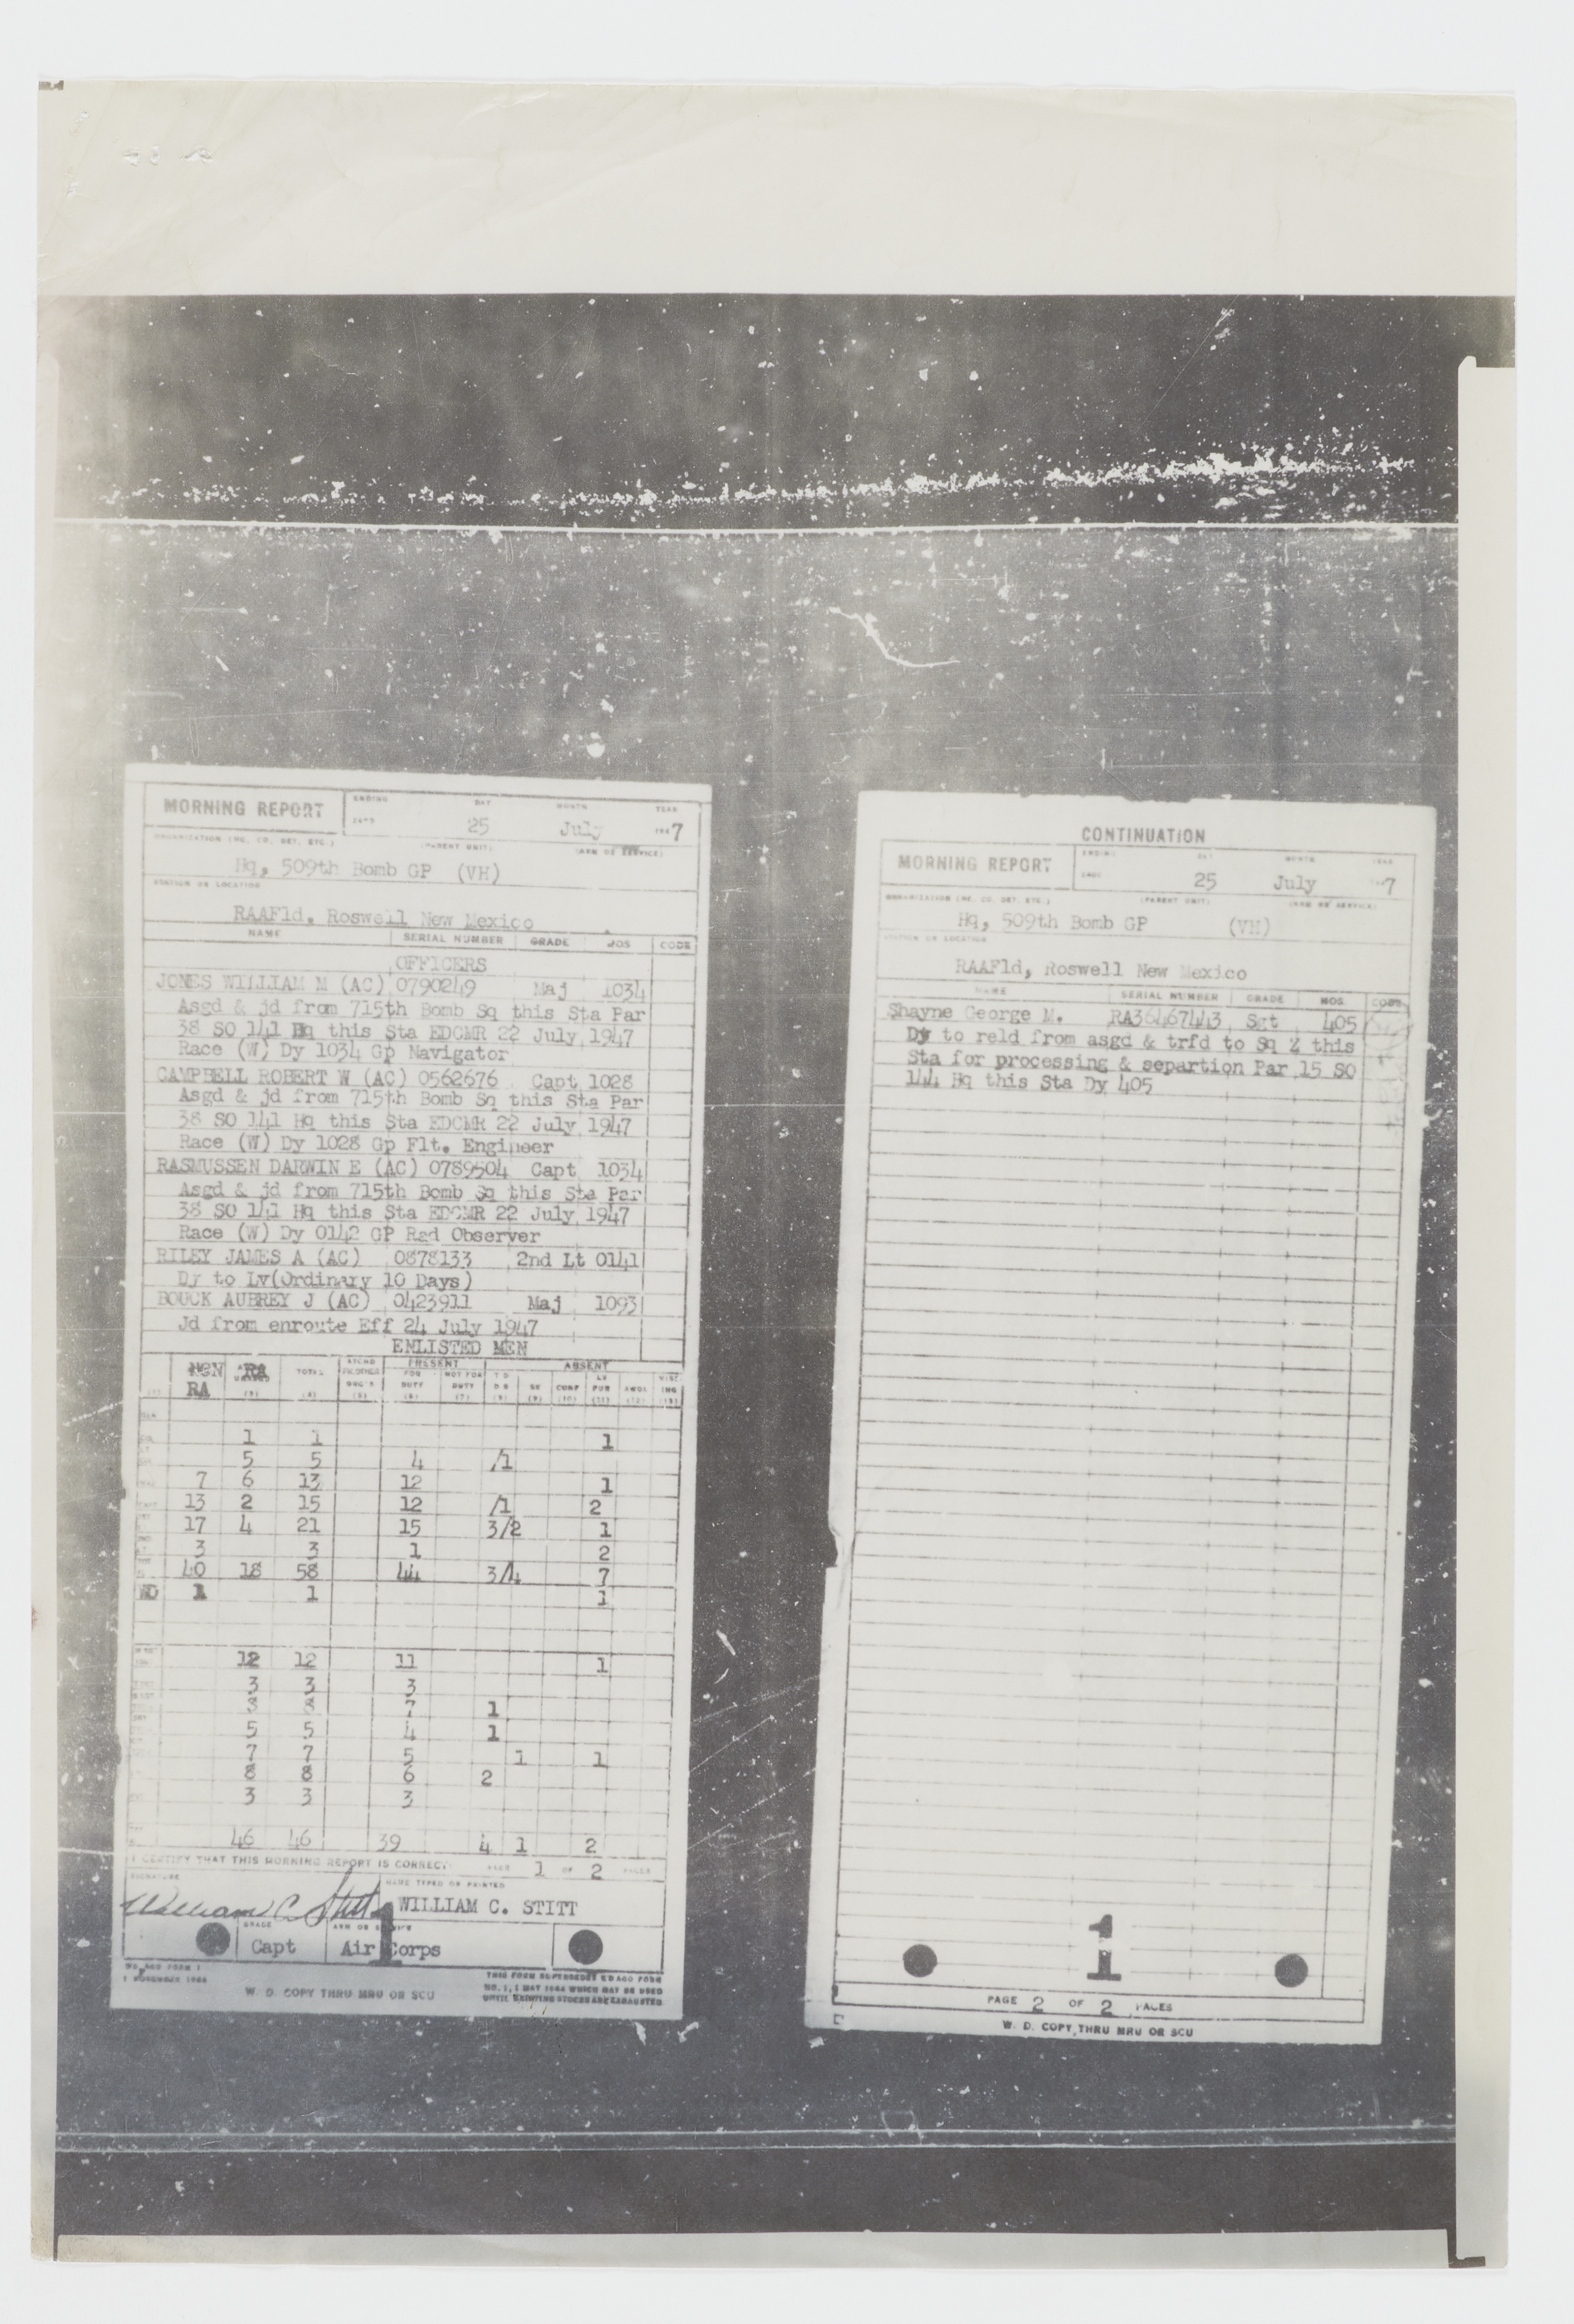 MORNING REPORT
ENDING DAY MONTH YEAR
25 July 1947
ORGANIZATION (HQ. CO. DET. ETC.) (PARENT UNIT) (ARM OR SERVICE)
Hq, 509th Bomb GP (VH)
STATION OR LOCATION
RAAFld, Roswell New Mexico
NAME SERIAL NUMBER GRADE MOS CODE
OFFICERS
JONES WILLIAM M (AC) 0790249 Maj 1034
Asgd & jd from 715th Bomb Sq this Sta Par
38 SO 141 Hq this Sta EDCMR 22 July 1947
Race (W) Dy 1034 Gp Navigator
CAMPBELL ROBERT W (AC) 0562676 Capt 1028
Asgd & jd from 715th Bomb Sq this Sta Par
38 SO 141 Hq this Sta EDCMR 22 July 1947
Race (W) Dy 1028 Gp Flt. Engineer
RASMUSSEN DARWIN E (AC) 0789504 Capt 1034
Asgd & jd from 715th Bomb Sq this Sta Par
38 SO 141 Hq this Sta EDCMR 22 July 1947
Race (W) Dy 0142 GP Rad Observer
RILEY JAMES A (AC) 0878133 2nd Lt 0141
Dy to Lv(Ordinary 10 Days)
BOUCK AUBREY J (AC) 0423911 Maj 1093
Jd from enroute Eff 24 July 1947
ENLISTED MEN
PRESENT ABSENT
NON RA TOTAL FOR NOT FOR T D LV
RA DUTY DUTY D S SK CONF FUR AWOL ING
(3) (4) (5) (6) (7) (8) (9) (10) (11) (12) (13)
1 1 1
5 5 4 /1
7 6 13 12 1
13 2 15 12 /1 2
17 4 21 15 3/2 1
3 3 1 2
40 18 58 44 3/4 7
WO 1 1 1
12 12 11 1
3 3 3
8 8 7 1
5 5 4 1
7 7 5 1 1
8 8 6 2
3 3 3
46 46 39 4 1 2
I CERTIFY THAT THIS MORNING REPORT IS CORRECT PAGE 1 OF 2 PAGES
SIGNATURE NAME TYPED OR PRINTED
William C. Stitt WILLIAM C. STITT
GRADE ARM OR SERVICE
Capt Air Corps
1
WD AGO FORM 1
1 NOVEMBER 1944
W. D. COPY THRU MRU OR SCU
THIS FORM SUPERSEDES WD AGO FORM
NO. 1, 1 MAY 1944 WHICH MAY BE USED
UNTIL EXISTING STOCKS ARE EXHAUSTED
CONTINUATION
MORNING REPORT
ENDING DAY MONTH YEAR
25 July 7
ORGANIZATION (HQ. CO. DET. ETC.) (PARENT UNIT) (ARM OR SERVICE)
Hq, 509th Bomb GP (VH)
STATION OR LOCATION
RAAFld, Roswell New Mexico
NAME SERIAL NUMBER GRADE MOS CODE
Shayne George M. RA36467443 Sgt 405
Dy to reld from asgd & trfd to Sq Z this
Sta for processing & separtion Par 15 SO
144 Hq this Sta Dy 405
1
PAGE 2 OF 2 PAGES
W. D. COPY THRU MRU OR SCU